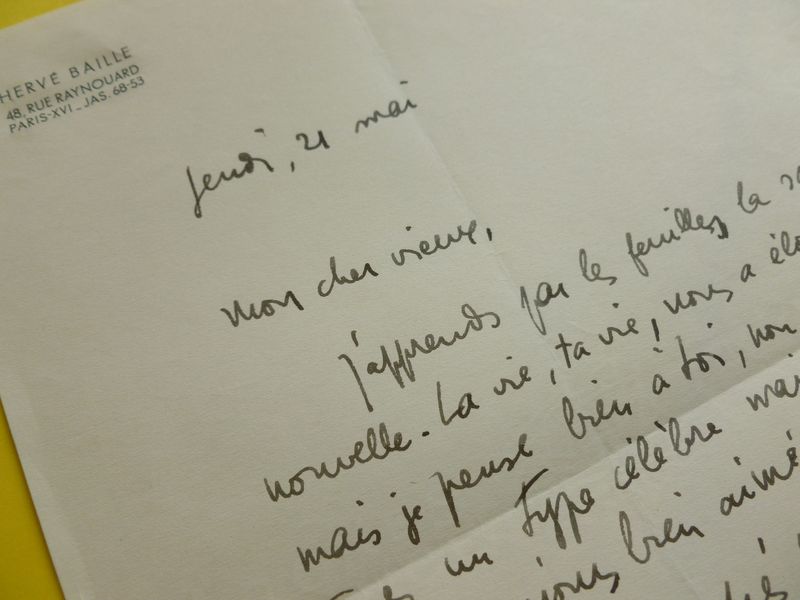 HERVÉ BAILLE
48, RUE RAYNOUARD
PARIS-XVI_JAS. 68-53
jeudi, 21 mai
mon cher vieux,
j'apprends par les feuilles, la
nouvelle. La vie, ta vie, nous a
mais je pense bien à toi, non
un type célèbre mais
bien aimé